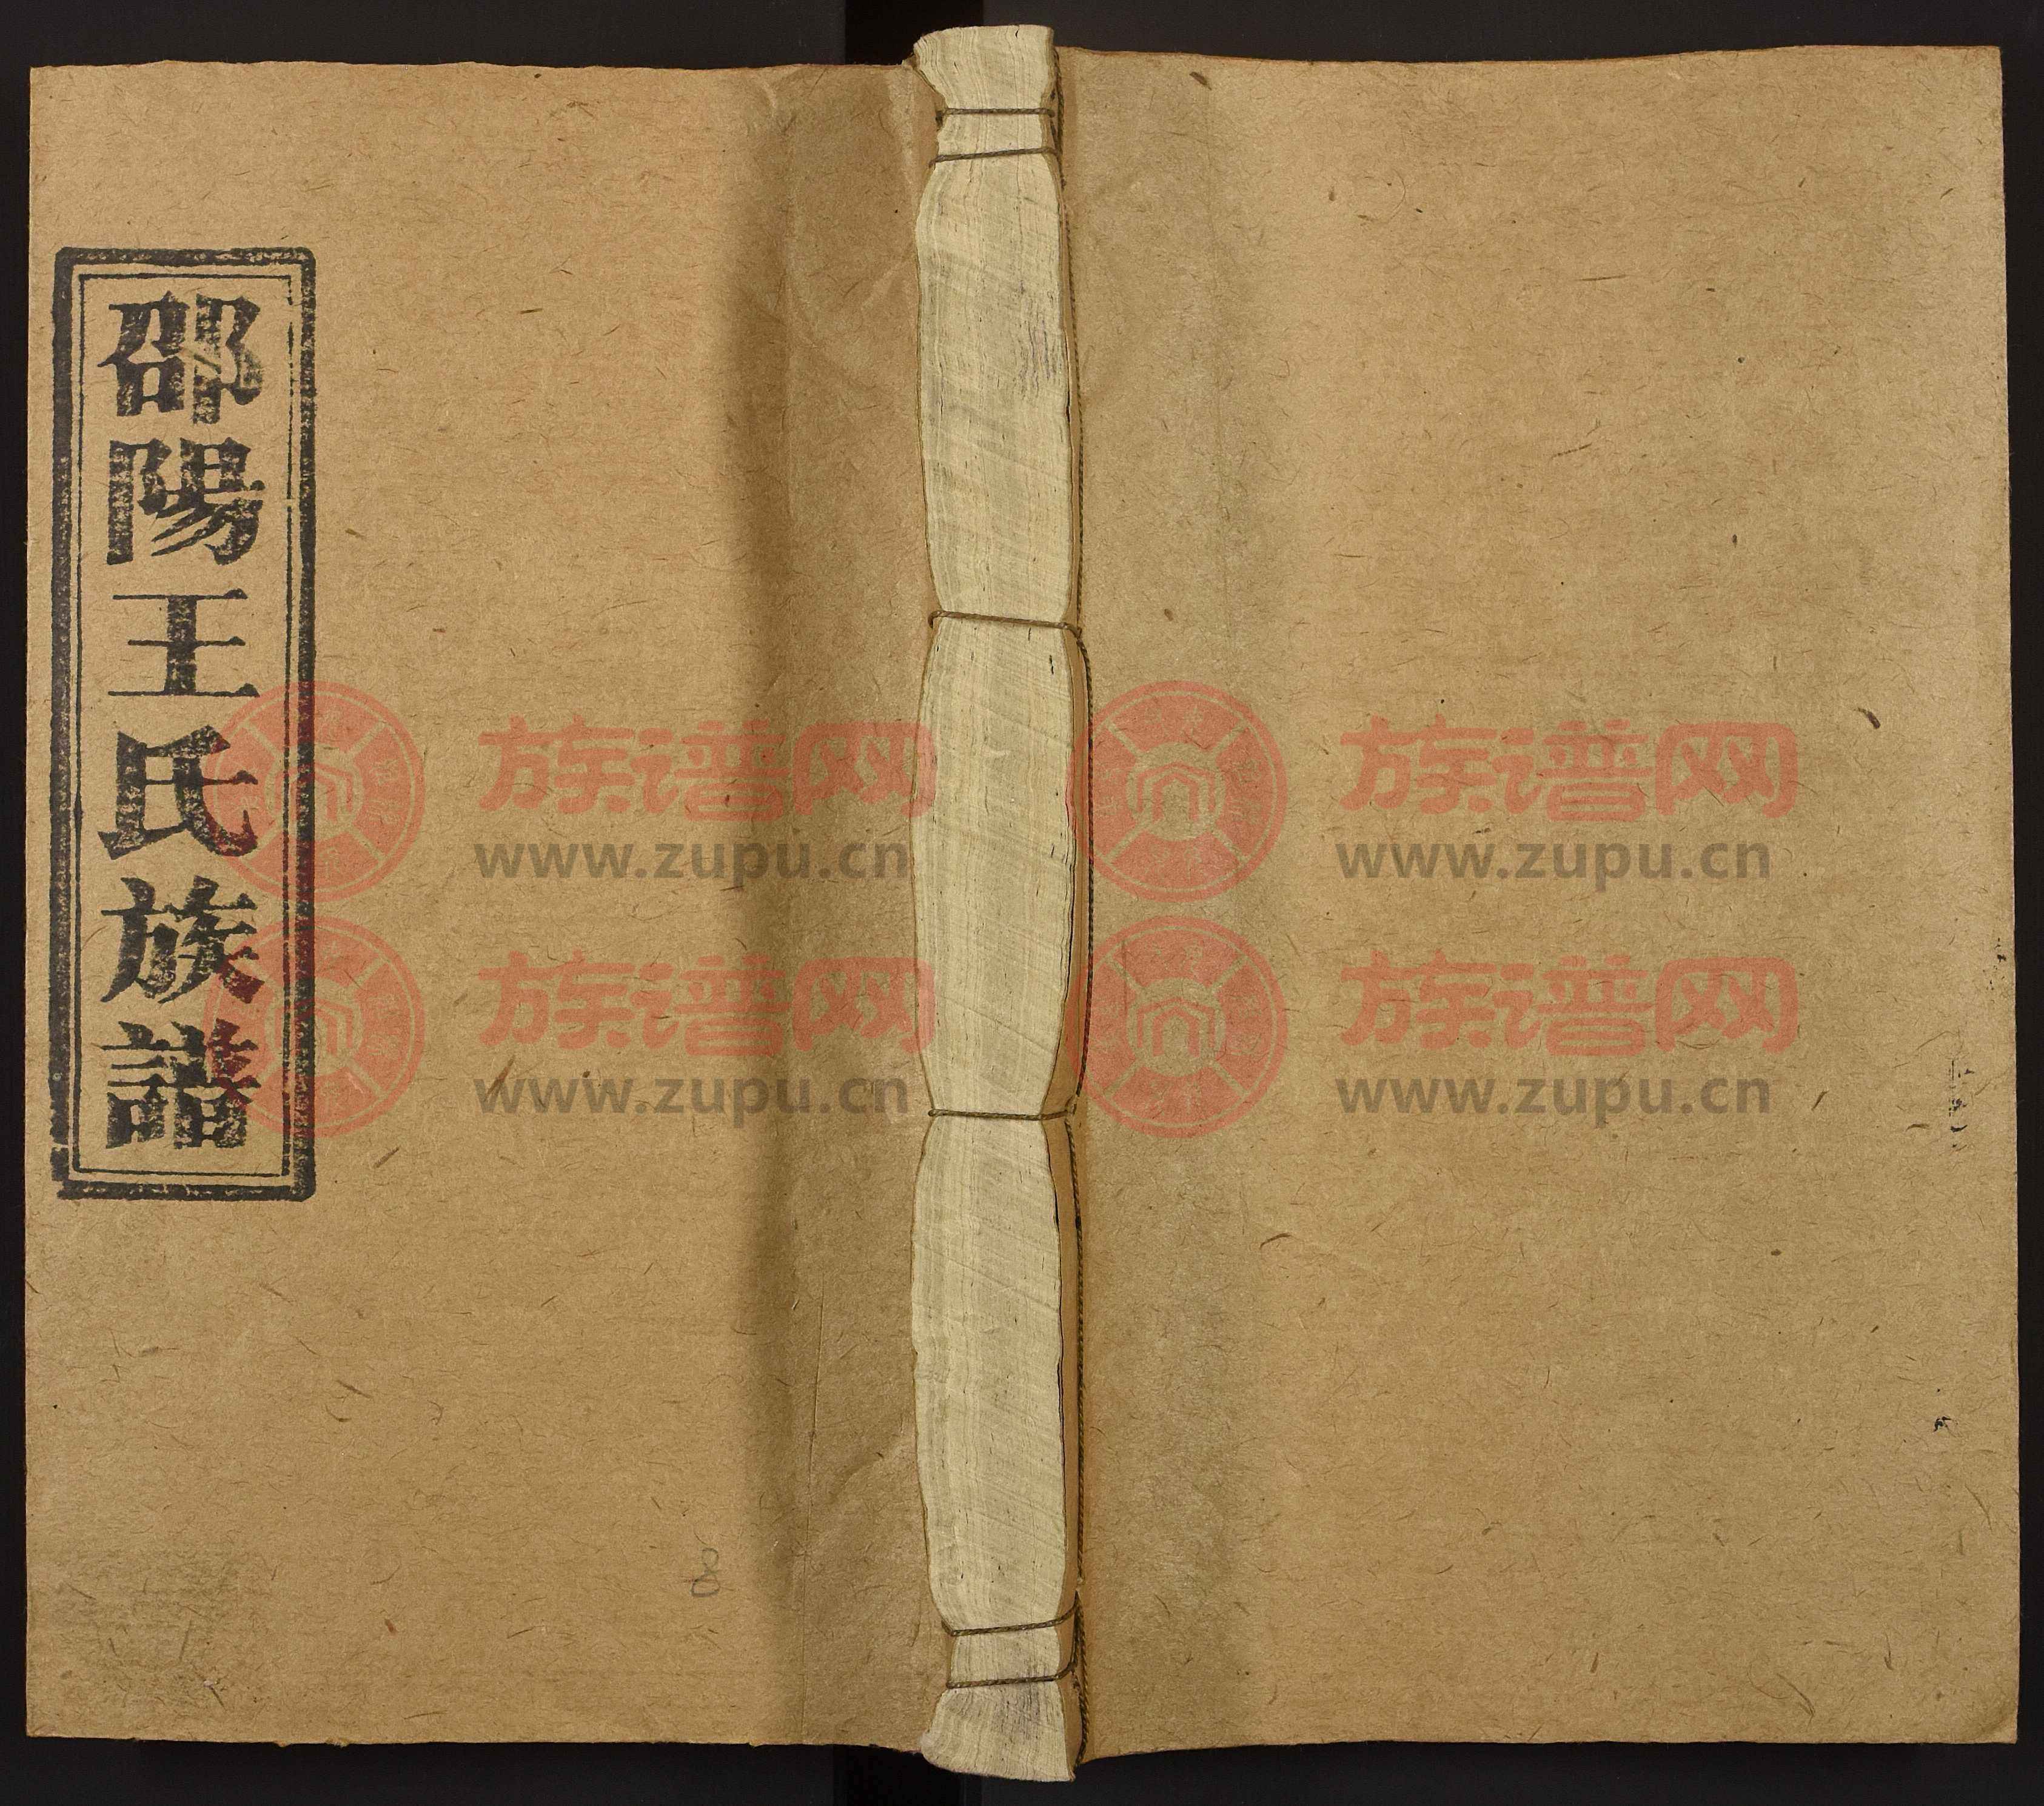 邵陽王氏族譜
族谱网
www.zupu.cn
族谱网
www.zupu.cn
族谱网
www.zupu.cn
族谱网
www.zupu.cn
8